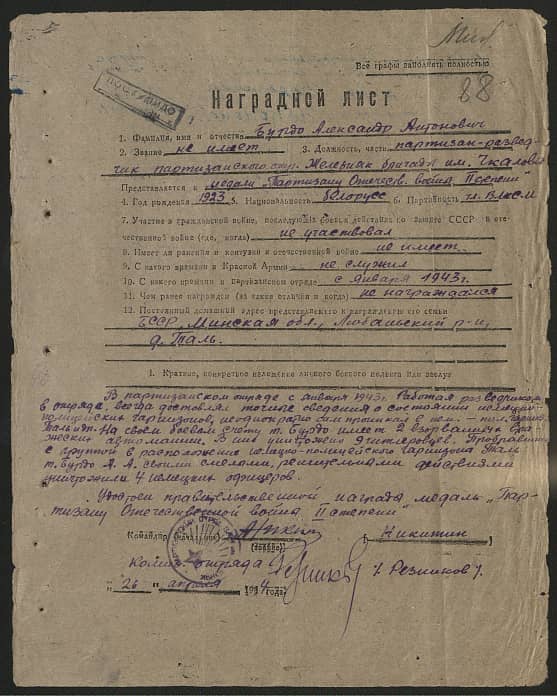 88
Все графы заполнять полностью
Наградной лист
1. Фамилия, имя и отчество Бурдо Александр Антонович
2. Звание не имеет 3. Должность, часть партизан-развед-
чик партизанского отр. Железняк бригады им. Чкалова
Представляется к медали "Партизану Отечеств. войны II степени"
4. Год рождения 1923 5. Национальность белорусс 6. Партийность чл. ВЛКСМ
7. Участие в гражданской войне, последующих боевых действиях по защите СССР и оте-
чественной войне (где, когда) не участвовал
8. Имеет ли ранения и контузии в отечественной войне не имеет.
9. С какого времени в Красной Армии не служил
10. С какого времени в партизанском отряде с января 1943 г.
11. Чем ранее награжден (за какие отличия и когда) не награждался
12. Постоянный домашний адрес представляемого к награждению и его семьи
БССР, Минская обл., Любаньский р-н,
д. Таль.
1. Краткое, конкретное изложение личного боевого подвига или заслуг
В партизанском отряде с января 1943 г. Работая разведчиком
в отряде, всегда доставлял точные сведения о состоянии немецко-
полицейских гарнизонов, неоднократно сам проникал в
Таль На своем боевом счету т. Бурдо имеет 2 взорванных вра-
жеских автомашины. В них уничтожено 9 гитлеровцев. Пробравшись
с группой в расположение немецко-полицейского гарнизона Таль
т. Бурдо А. А. своими смелыми, решительными действиями
уничтожили 4 немецких офицеров.
Удостоен правительственной награды медаль "Пар-
тизану Отечественной войны II степени"
Командир (начальник) Никитин
Комис. отряда / Резников /.
"26" апреля 1944 года